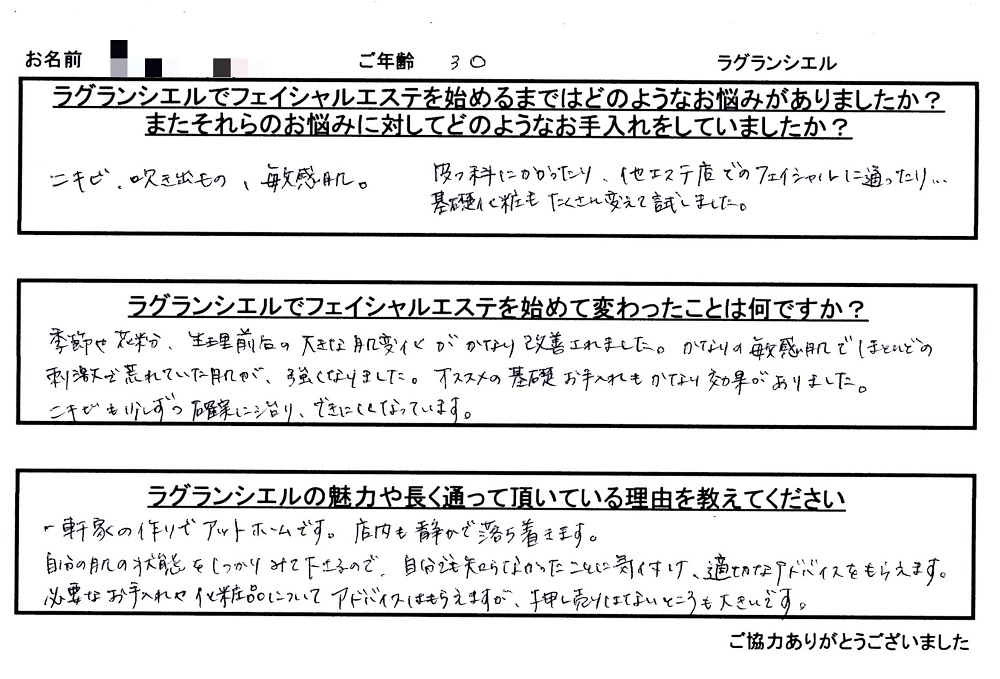 お名前 ご年齢 30 ラグランシエル
ラグランシエルでフェイシャルエステを始めるまではどのようなお悩みがありましたか?
またそれらのお悩みに対してどのようなお手入れをしていましたか?
ニキビ、吹き出もの、敏感肌。
皮フ科にかかったり、他エステ店でのフェイシャルに通ったり…
基礎化粧もたくさん変えて試しました。
ラグランシエルでフェイシャルエステを始めて変わったことは何ですか?
季節や花粉、生理前后の大きな肌変化がかなり改善されました。かなりの敏感肌でほとんどの
刺激で荒れていた肌が、強くなりました。オススメの基礎お手入れもかなり効果がありました。
ニキビも少しずつ確実に治り、できにくくなっています。
ラグランシエルの魅力や長く通って頂いている理由を教えてください
一軒家の作りでアットホームです。店内も静かで落ち着きます。
自分の肌の状態をしっかりみて下さるので、自分でも知らなかったことに気付け、適切なアドバイスをもらえます。
必要なお手入れや化粧品についてアドバイスはもらえますが、押し売りはないところも大きいです。
ご協力ありがとうございました